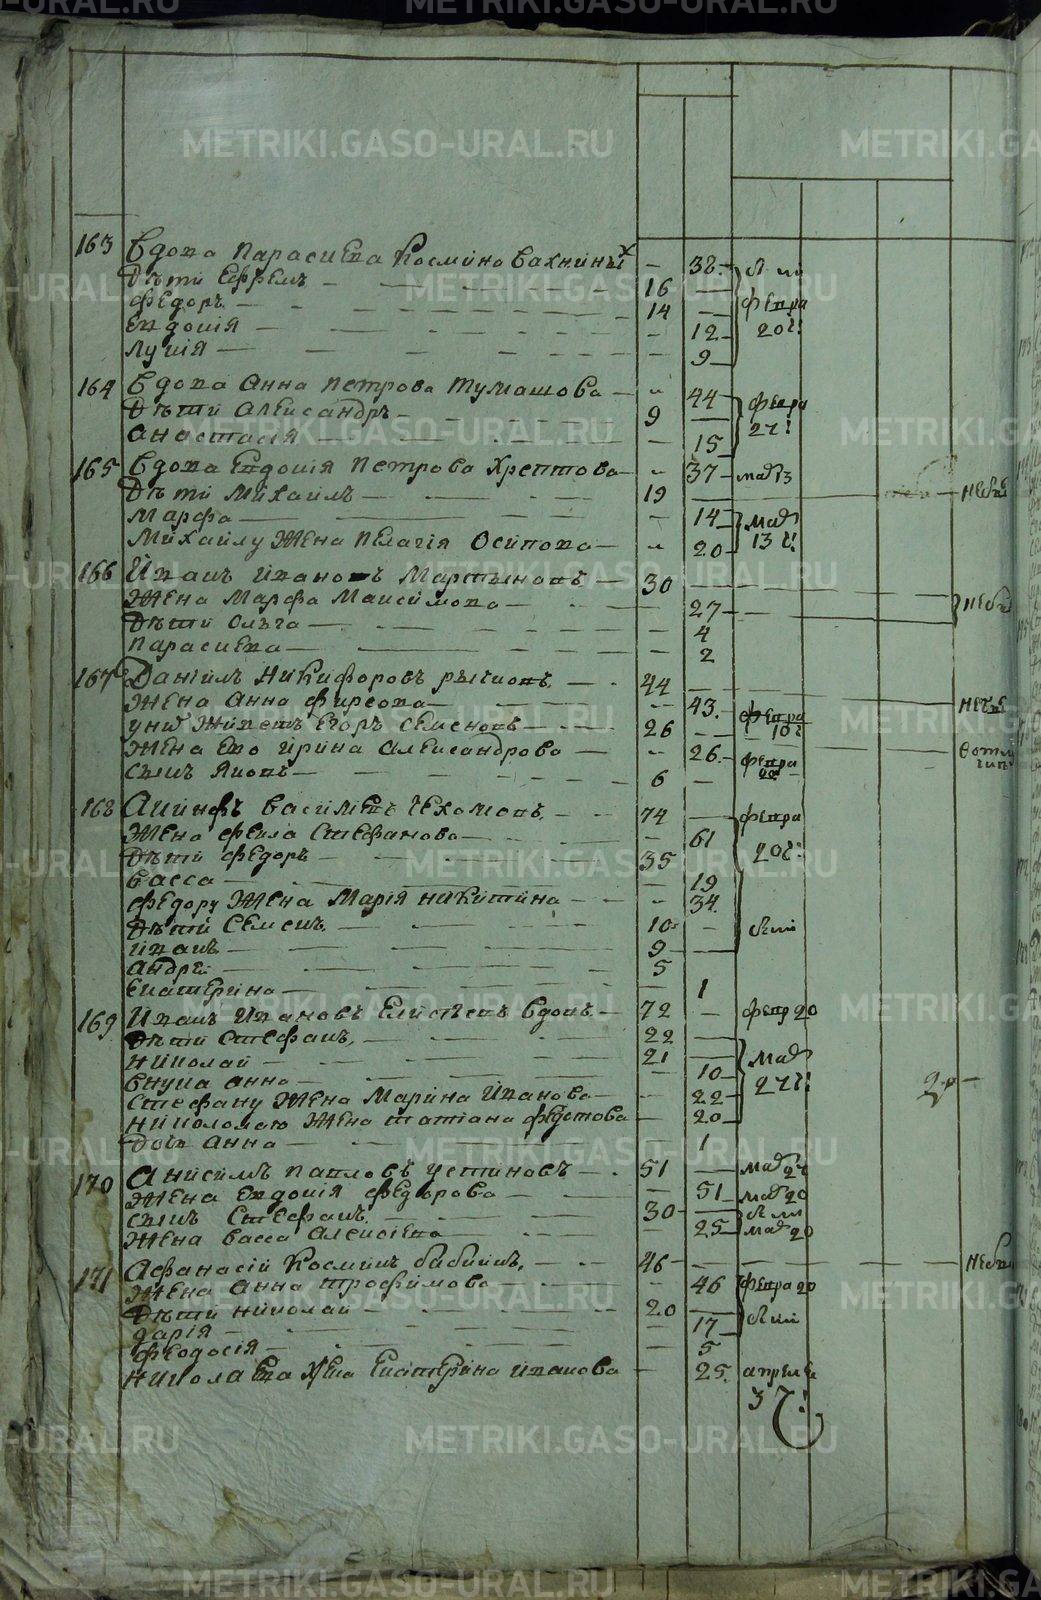 METRIKI.GASO-URAL.RU
163 Вдова Парасиева Космина Вахниныхъ — 38
Дѣти Ефремъ — 16 февра
Федоръ — 14 20 ч:
Евдокія — 12
Лукія — 9
164 Вдова Анна Петрова Тумашова — 44 февра
Дѣти Александръ — 9 27!
Анастасія — 15
165 Вдова Евдокія Петрова Хрептова — 37 мар 3
Дѣти Михаилъ — 19
Марфа — 14 мар
Михайлу жена Пелагія Осипова — 20 13 ч!
166 Иванъ Ивановъ Мартыновъ — 30
Жена Марфа Максимова — 27
Дѣти Ольга — 4
Парасиева — 2
167 Даніилъ Никифоровъ — 44
Жена Анна Фирсова — 43 февра 10
у нихъ живетъ Егоръ Семеновъ — 26
Жена ево Ирина Александрова — 26 февра 20
сынъ Яковъ — 6
168 Василіевъ Чехомовъ — 74 февра
Жена Фекла Стефанова — 61 20 ч:
Дѣти Федоръ — 35
Васса — 19
Федору жена Марія Никитина — 34
Дѣти Семенъ — 10
Иванъ — 9
Андрей — 5
Екатерина — 1
169 Иванъ Ивановъ Елисѣевъ вдовъ — 72 февр 20
Дѣти Стефанъ — 22
Николай — 21 мар
внука Анна — 10 27!
Стефану жена Марина Иванова — 22
Николаю жена Татіана Федотова — 20
дочь Анна — 1
170 Анисимъ Павловъ Устиновъ — 51 мар 27
Жена Евдокія Федорова — 51 мар 20
сынъ Стефанъ — 30
Жена Васса Алексіева — 25 мар 20
171 Афанасій Косминъ Бабинъ — 46
Жена Анна Трофимова — 46 февра 20
Дѣти Николай — 20
Дарія — 17
Феодосія — 5
Николаева жена Екатерина Иванова — 25 апреля
3 7!